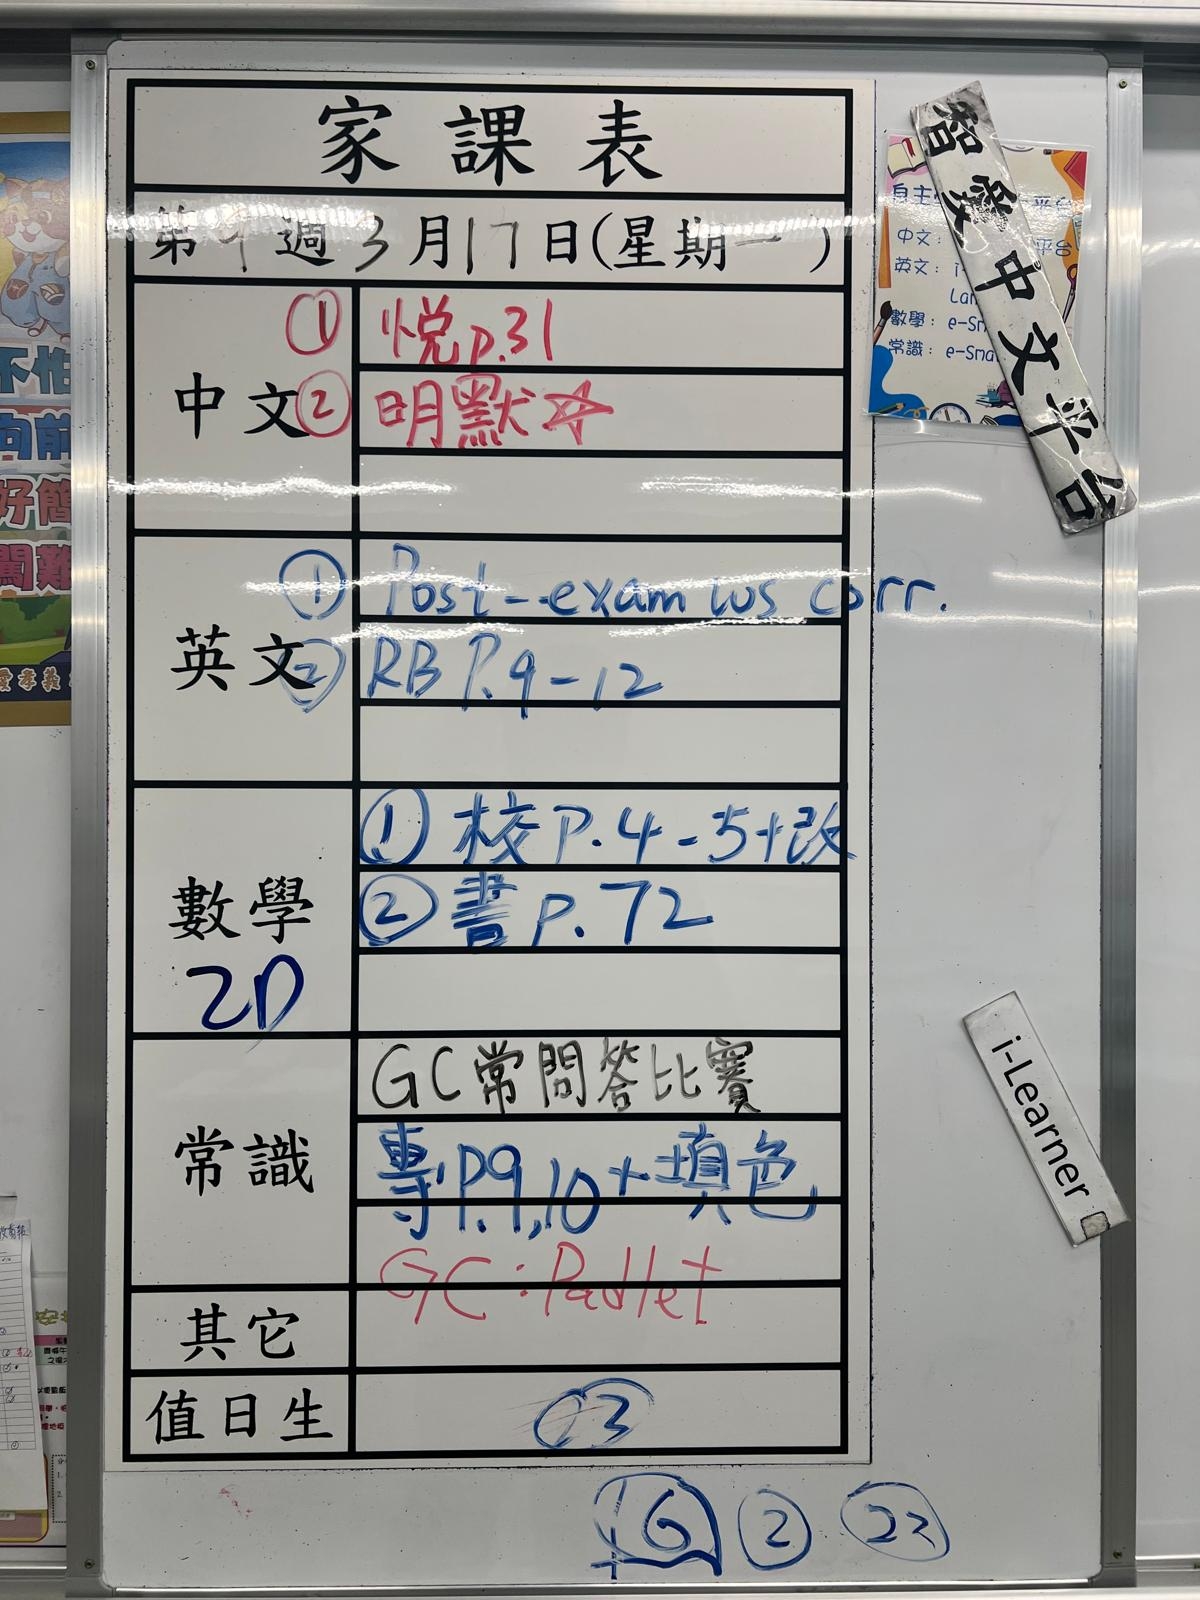 家課表
第9週3月17日(星期一)
中文
① 悦p.31
② 明默☆
英文
① Post-exam ws corr.
② RB P.9-12
數學
2D
① 校P.4-5+改
② 書p.72
常識
GC常問答比賽
專P.9,10+填色
GC:Padlet
其它
值日生
3
6 ② 22
智愛中文平台
自主
平台
中文:
平台
英文: i
Lar
數學: e-Sm
常識: e-Sma
i-Learner
不怕
向前
好簡
闖難
愛孝義